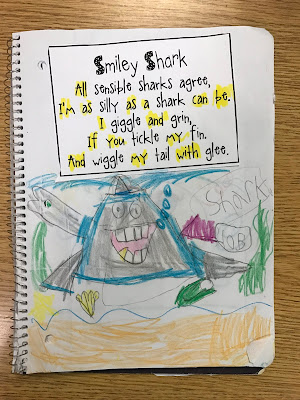 Smiley Shark
All sensible sharks agree,
I'm as silly as a shark can be.
I giggle and grin,
If you tickle my fin.
And wiggle my tail with glee.
Shark